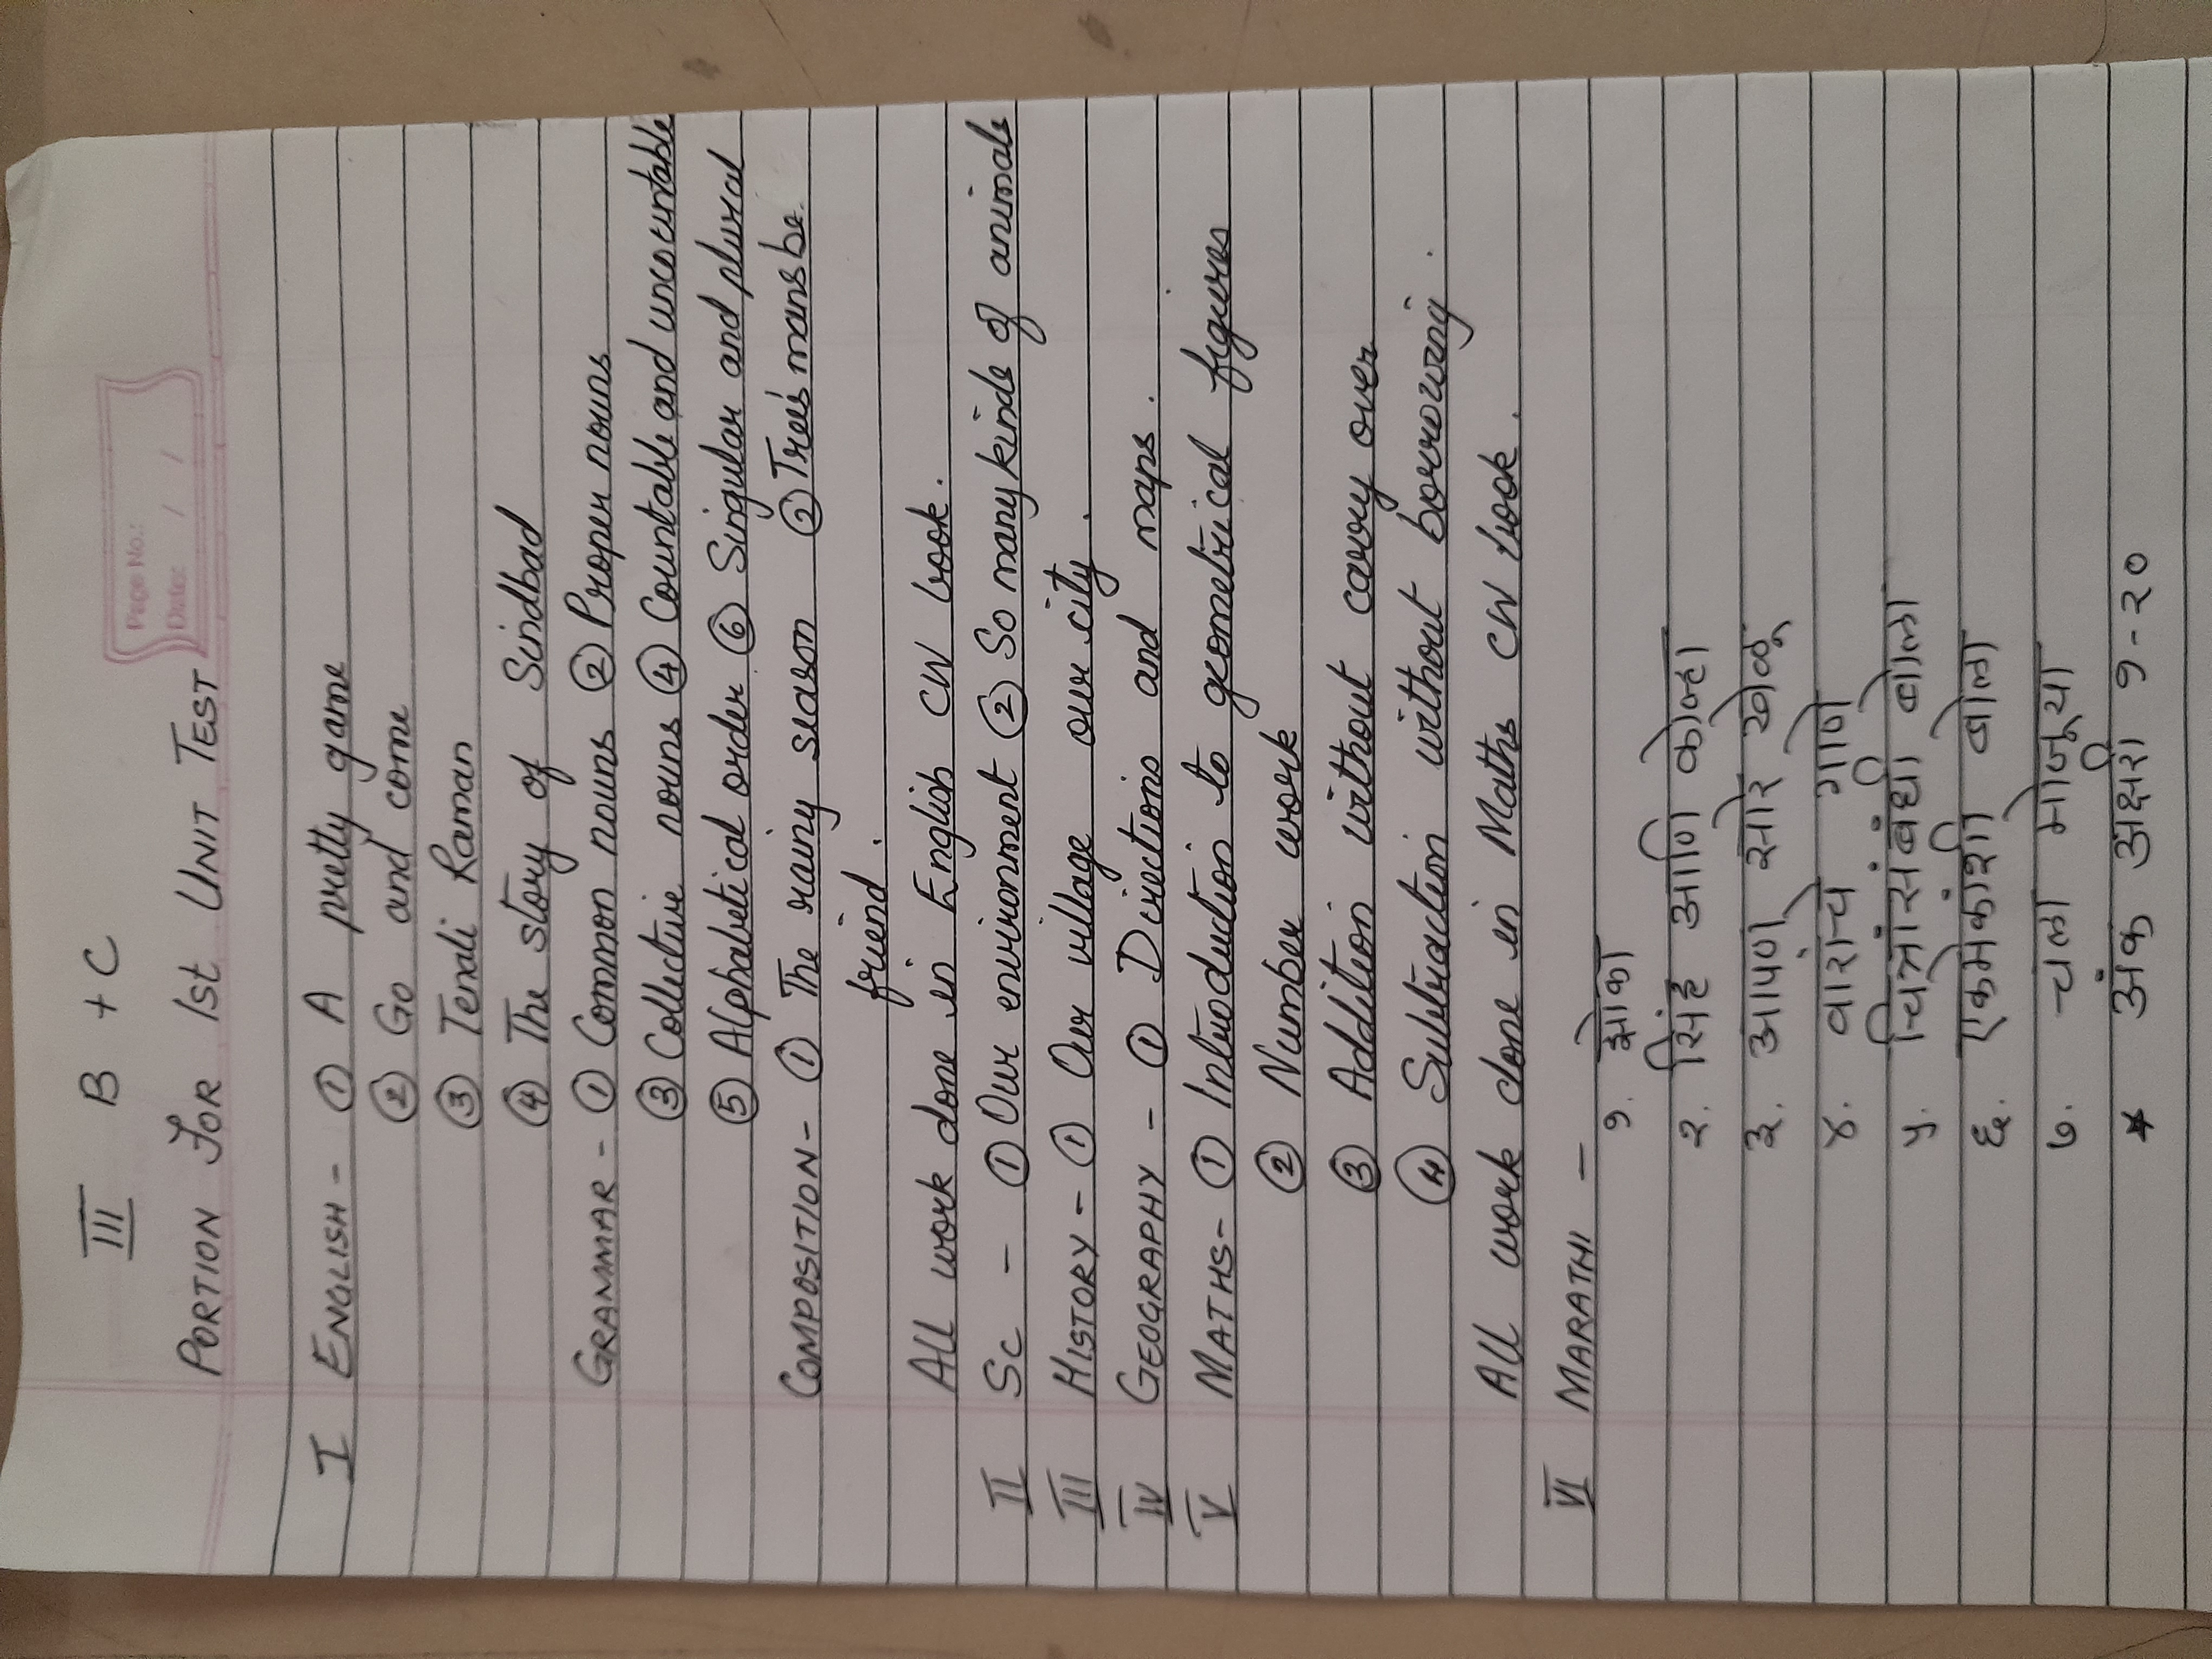 III B + C
Page No.:
Date: / /
PORTION FOR 1st UNIT TEST
I ENGLISH - ① A pretty game
② Go and come
③ Tenali Raman
④ The story of Sindbad
GRAMMAR - ① Common nouns ② Proper nouns
③ Collective nouns ④ Countable and uncountable
⑤ Alphabetical order ⑥ Singular and plural
COMPOSITION - ① The rainy season ② Trees mans be
friend.
All work done in English CW book.
II Sc - ① Our environment ② So many kinds of animals
III HISTORY - ① Our village our city.
IV GEOGRAPHY - ① Directions and maps.
V MATHS - ① Introduction to geometrical figures
② Number work
③ Addition without carry over
④ Subtraction without borrowing.
All work done in Maths CW book.
VI MARATHI -
१. झोका
२. सिंह आणि कोल्हा
३. आपण सारे खेळू
४. वाऱ्याचे गाणे
५. चित्रांसंबंधी बोला
६. एकमेकांशी बोला
७. चला मोजूया
* अंक अक्षरी १-२०